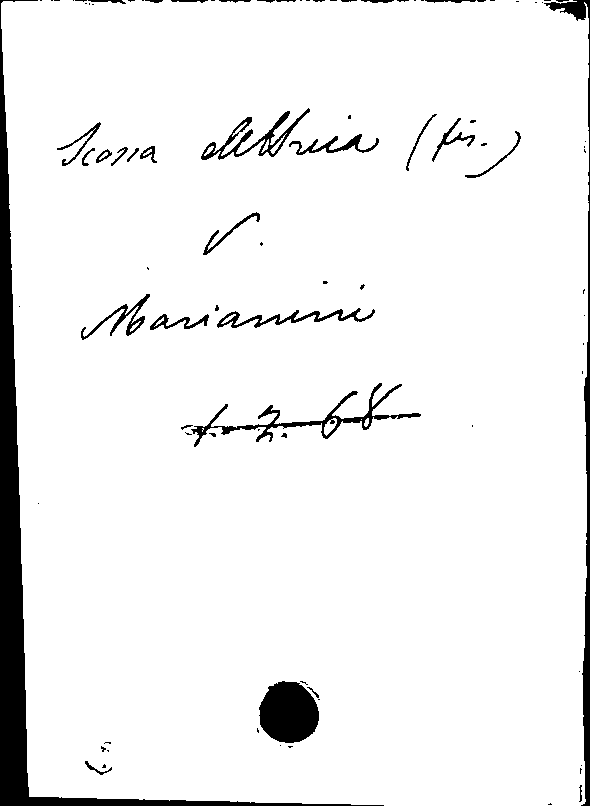 Scossa elettrica (fis.)
V.
Marianini
1. 2. 68